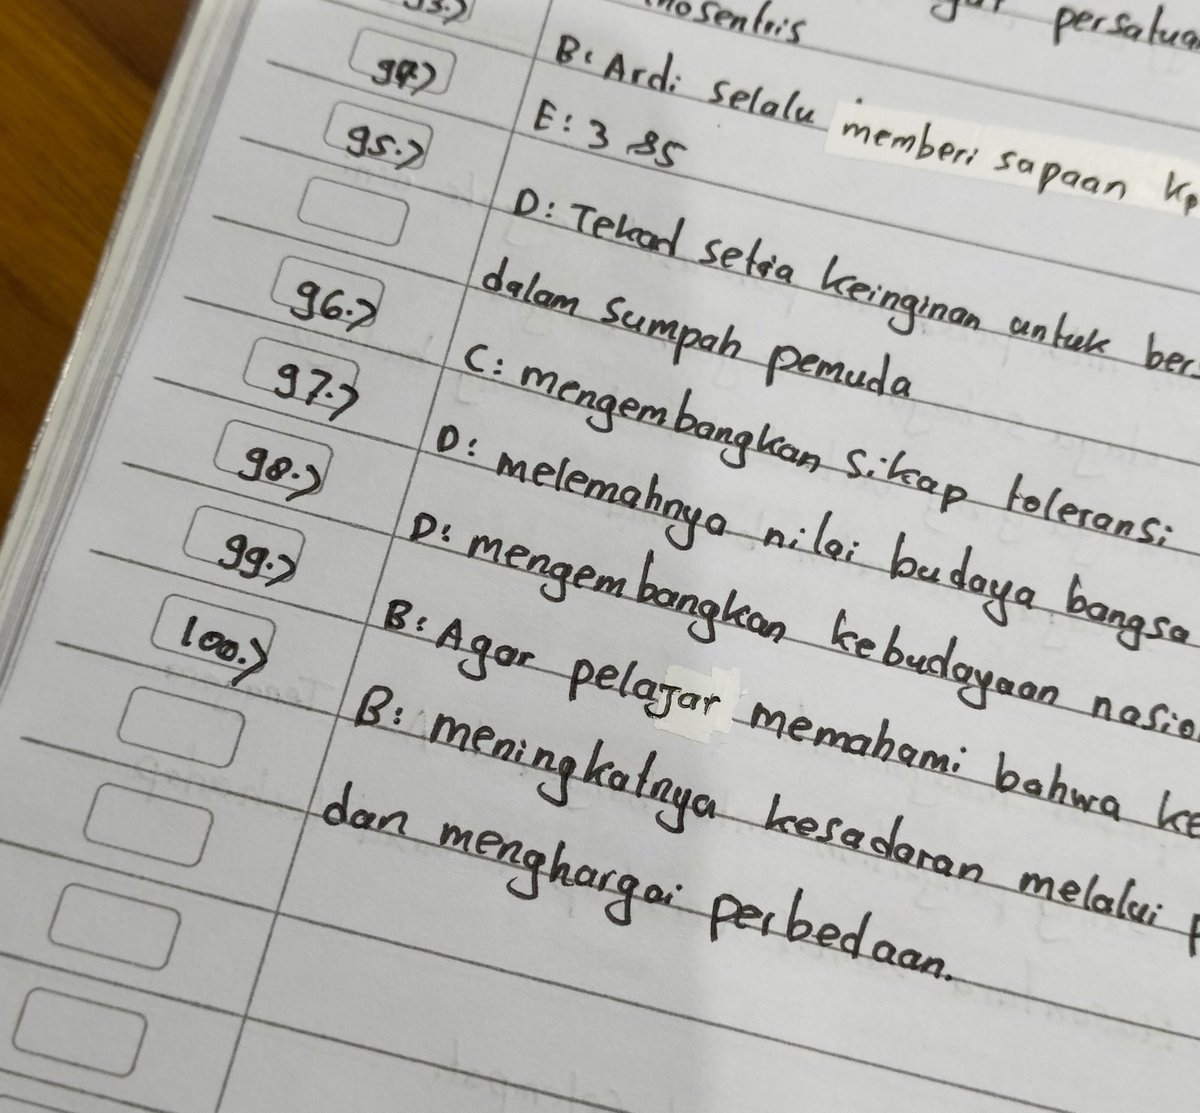 persatua
nosentris
93.) B: Ardi selalu memberi sapaan kp
94.) E: 3 85
95.) D: Tekad setia keinginan untuk ber
dalam sumpah pemuda
96.) C: mengembangkan sikap toleransi
97.) D: melemahnya nilai budaya bangsa
98.) D: mengembangkan kebudayaan nasio
99.) B: Agar pelajar memahami bahwa ke
100.) B: meningkatnya kesadaran melalui p
dan menghargai perbedaan.